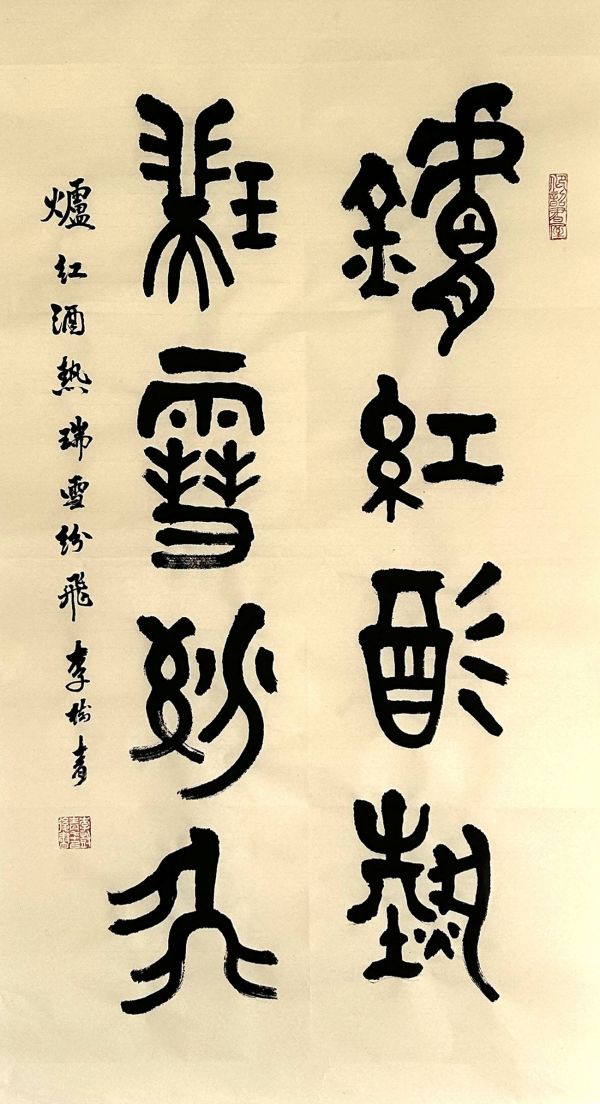 鑪紅酒熱
瑞雪紛飛
爐紅酒熱瑞雪紛飛李梅青